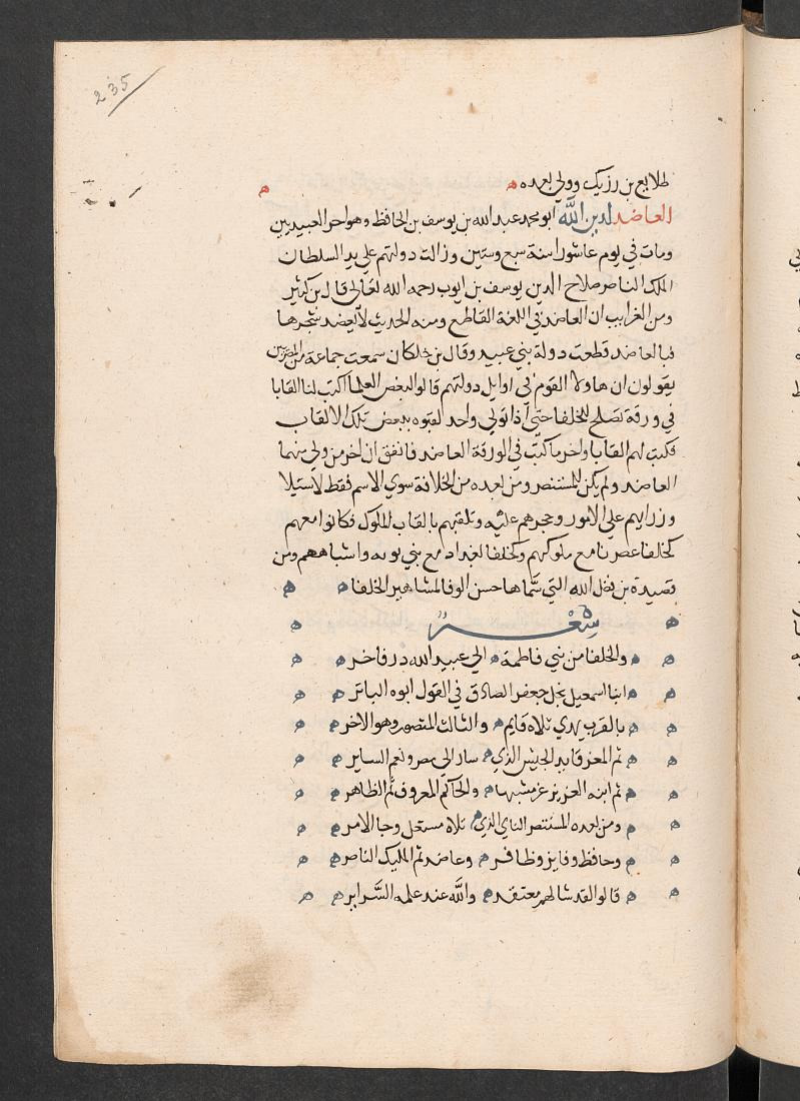 235
طلايع بن رزيك وولي بعده ه
العاضد لدين الله ابو محمد عبد الله بن يوسف بن الحافظ وهو اخر العبيديين
ومات في يوم عاشورا سنة سبع وستين وزالت دولتهم على يد السلطان
الملك الناصر صلاح الدين يوسف بن ايوب رحمه الله تعالى قال بن كثير
ومن الغرايب ان العاضد في اللغة القاطع ومنه الحديث لا يعضد شجرها
فبالعاضد قطعت دولة بني عبيد وقال بن خلكان سمعت جماعة من المصريين
يقولون ان هاولا القوم في اوايل دولتهم قالوا لبعض العلما اكتب لنا القابا
في ورقة تصلح للخلفا حتى اذا تولي واحد لقبوه ببعض تلك الالقاب
فكتب لهم القابا واخر ما كتب في الورقة العاضد فاتفق ان اخر من ولي منهما
العاضد ولم يكن للمستنصر ومن بعده من الخلافة سوي الاسم فقط لاستيلا
وزرايهم على الامور وحجرهم عليه وتلقبهم بالقاب الملوك فكانوا معهم
كخلفا عصرنا مع ملوكهم وكخلفا بغداد مع بني بويه واشباههم ومن
قصيدة بن فضل الله التي سماها حسن الوفا لمشاهير الخلفا
شعر
والخلفا من بني فاطمة ه الي عبيد الله در فاخر
ابنا اسمعيل نجل جعفر الصادق في القول ابوه الباقر
بالغرب مهدي تلاه قايم ه والثالث المنصور وهو الاخر
ثم المعز قايد الجيش الذي ه سار الى مصر ونعم الساير
ثم ابنه العزيز عز مشبها ه والحاكم المعروف ثم الظاهر
ومن بعده المستنصر الناي الذي ه تلاه مستعل وجا الامر
وحافظ وفايز وظافر ه وعاضد ثم المليك الناصر
قالوا لقد شالهم معتقد ه والله عند علمه السراير